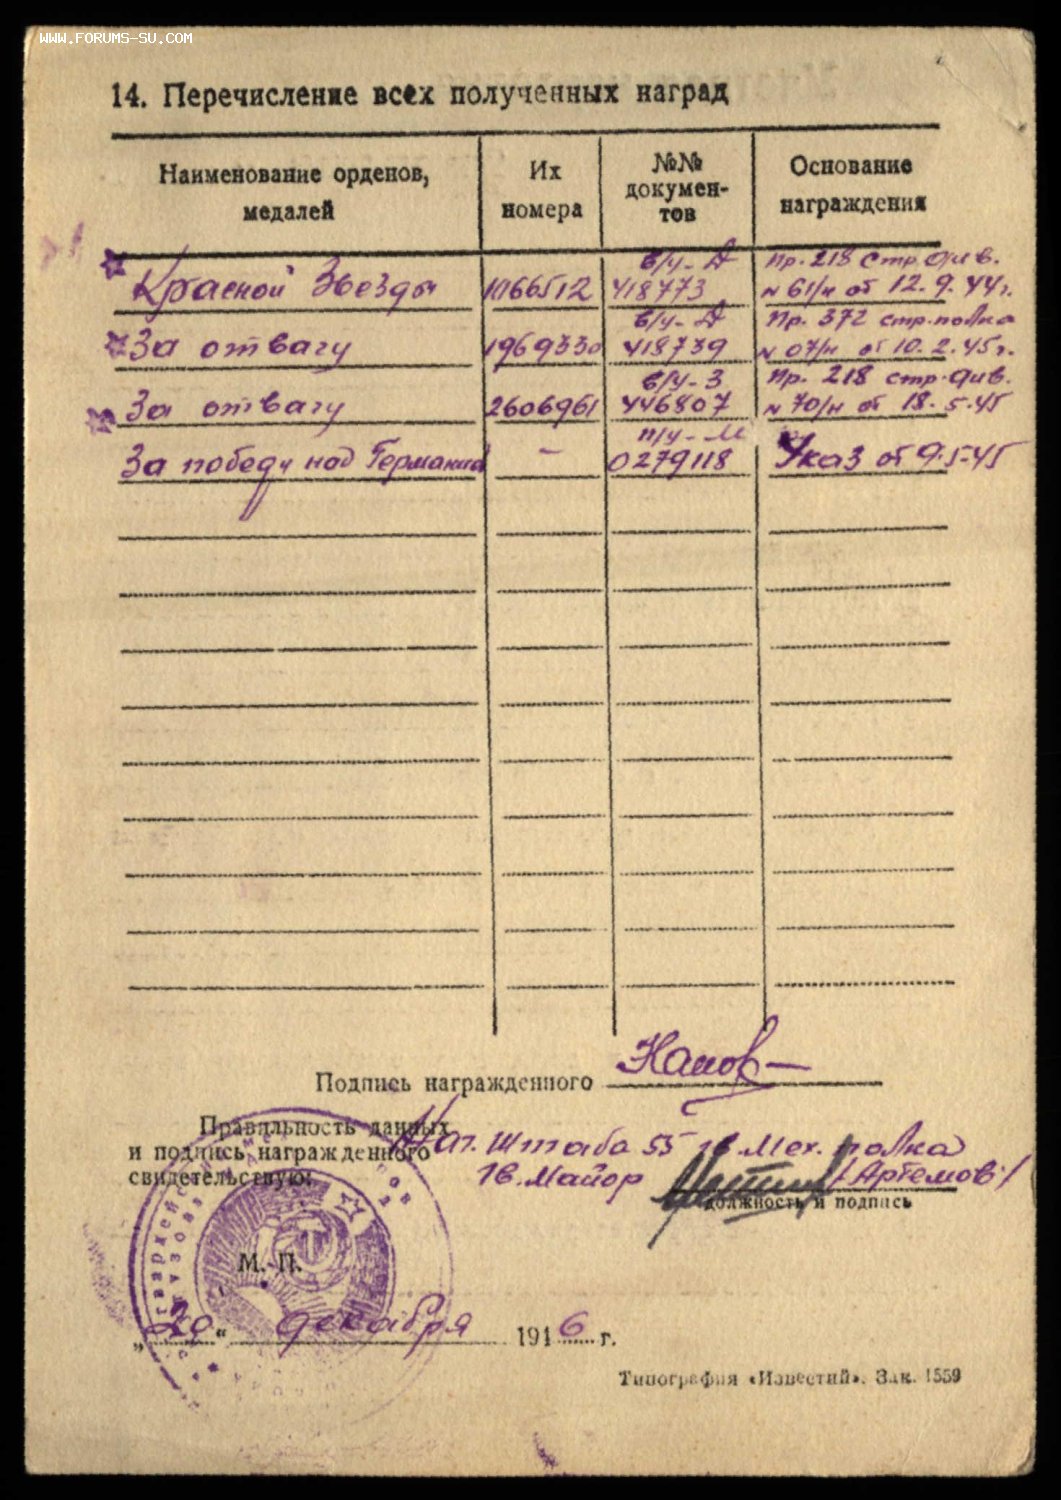 WWW.FORUMS-SU.COM
14. Перечисление всех полученных наград
Наименование орденов, медалей
Их номера
№№ докумен-тов
Основание награждения
Красной Звезды 1066512 в/у-Д 418773 Пр. 218 стр. див. № 61/н от 12.9.44г.
За отвагу 1969330 в/у-Д 418739 Пр. 372 стр. полка № 07/н от 10.2.45г.
За отвагу 2606961 в/у-З 446807 Пр. 218 стр. див. № 70/н от 18.5.45
За победу над Германией - п/у-М 0279118 Указ от 9.5.45
Подпись награжденного
Правильность данных
и подпись награжденного
свидетельствую:
Нач. Штаба 55 гв. Мех. полка
гв. Майор /Артемов/
должность и подпись
М. П.
„20“ декабря 1946 г.
Типография «Известий». Зак. 1559